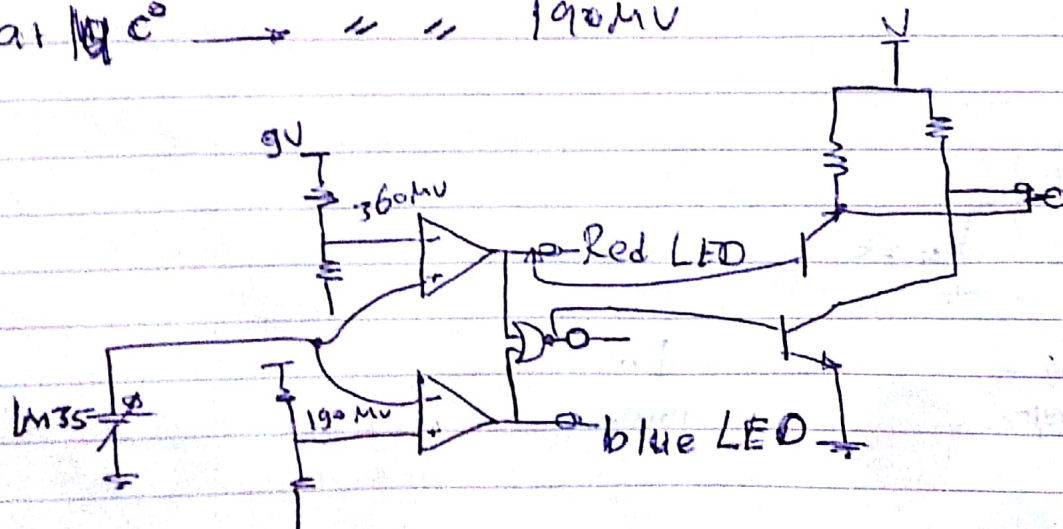 at 19 C° → " " 190 MV
V
9V
360MV
Red LED
LM35
190 MV
blue LED